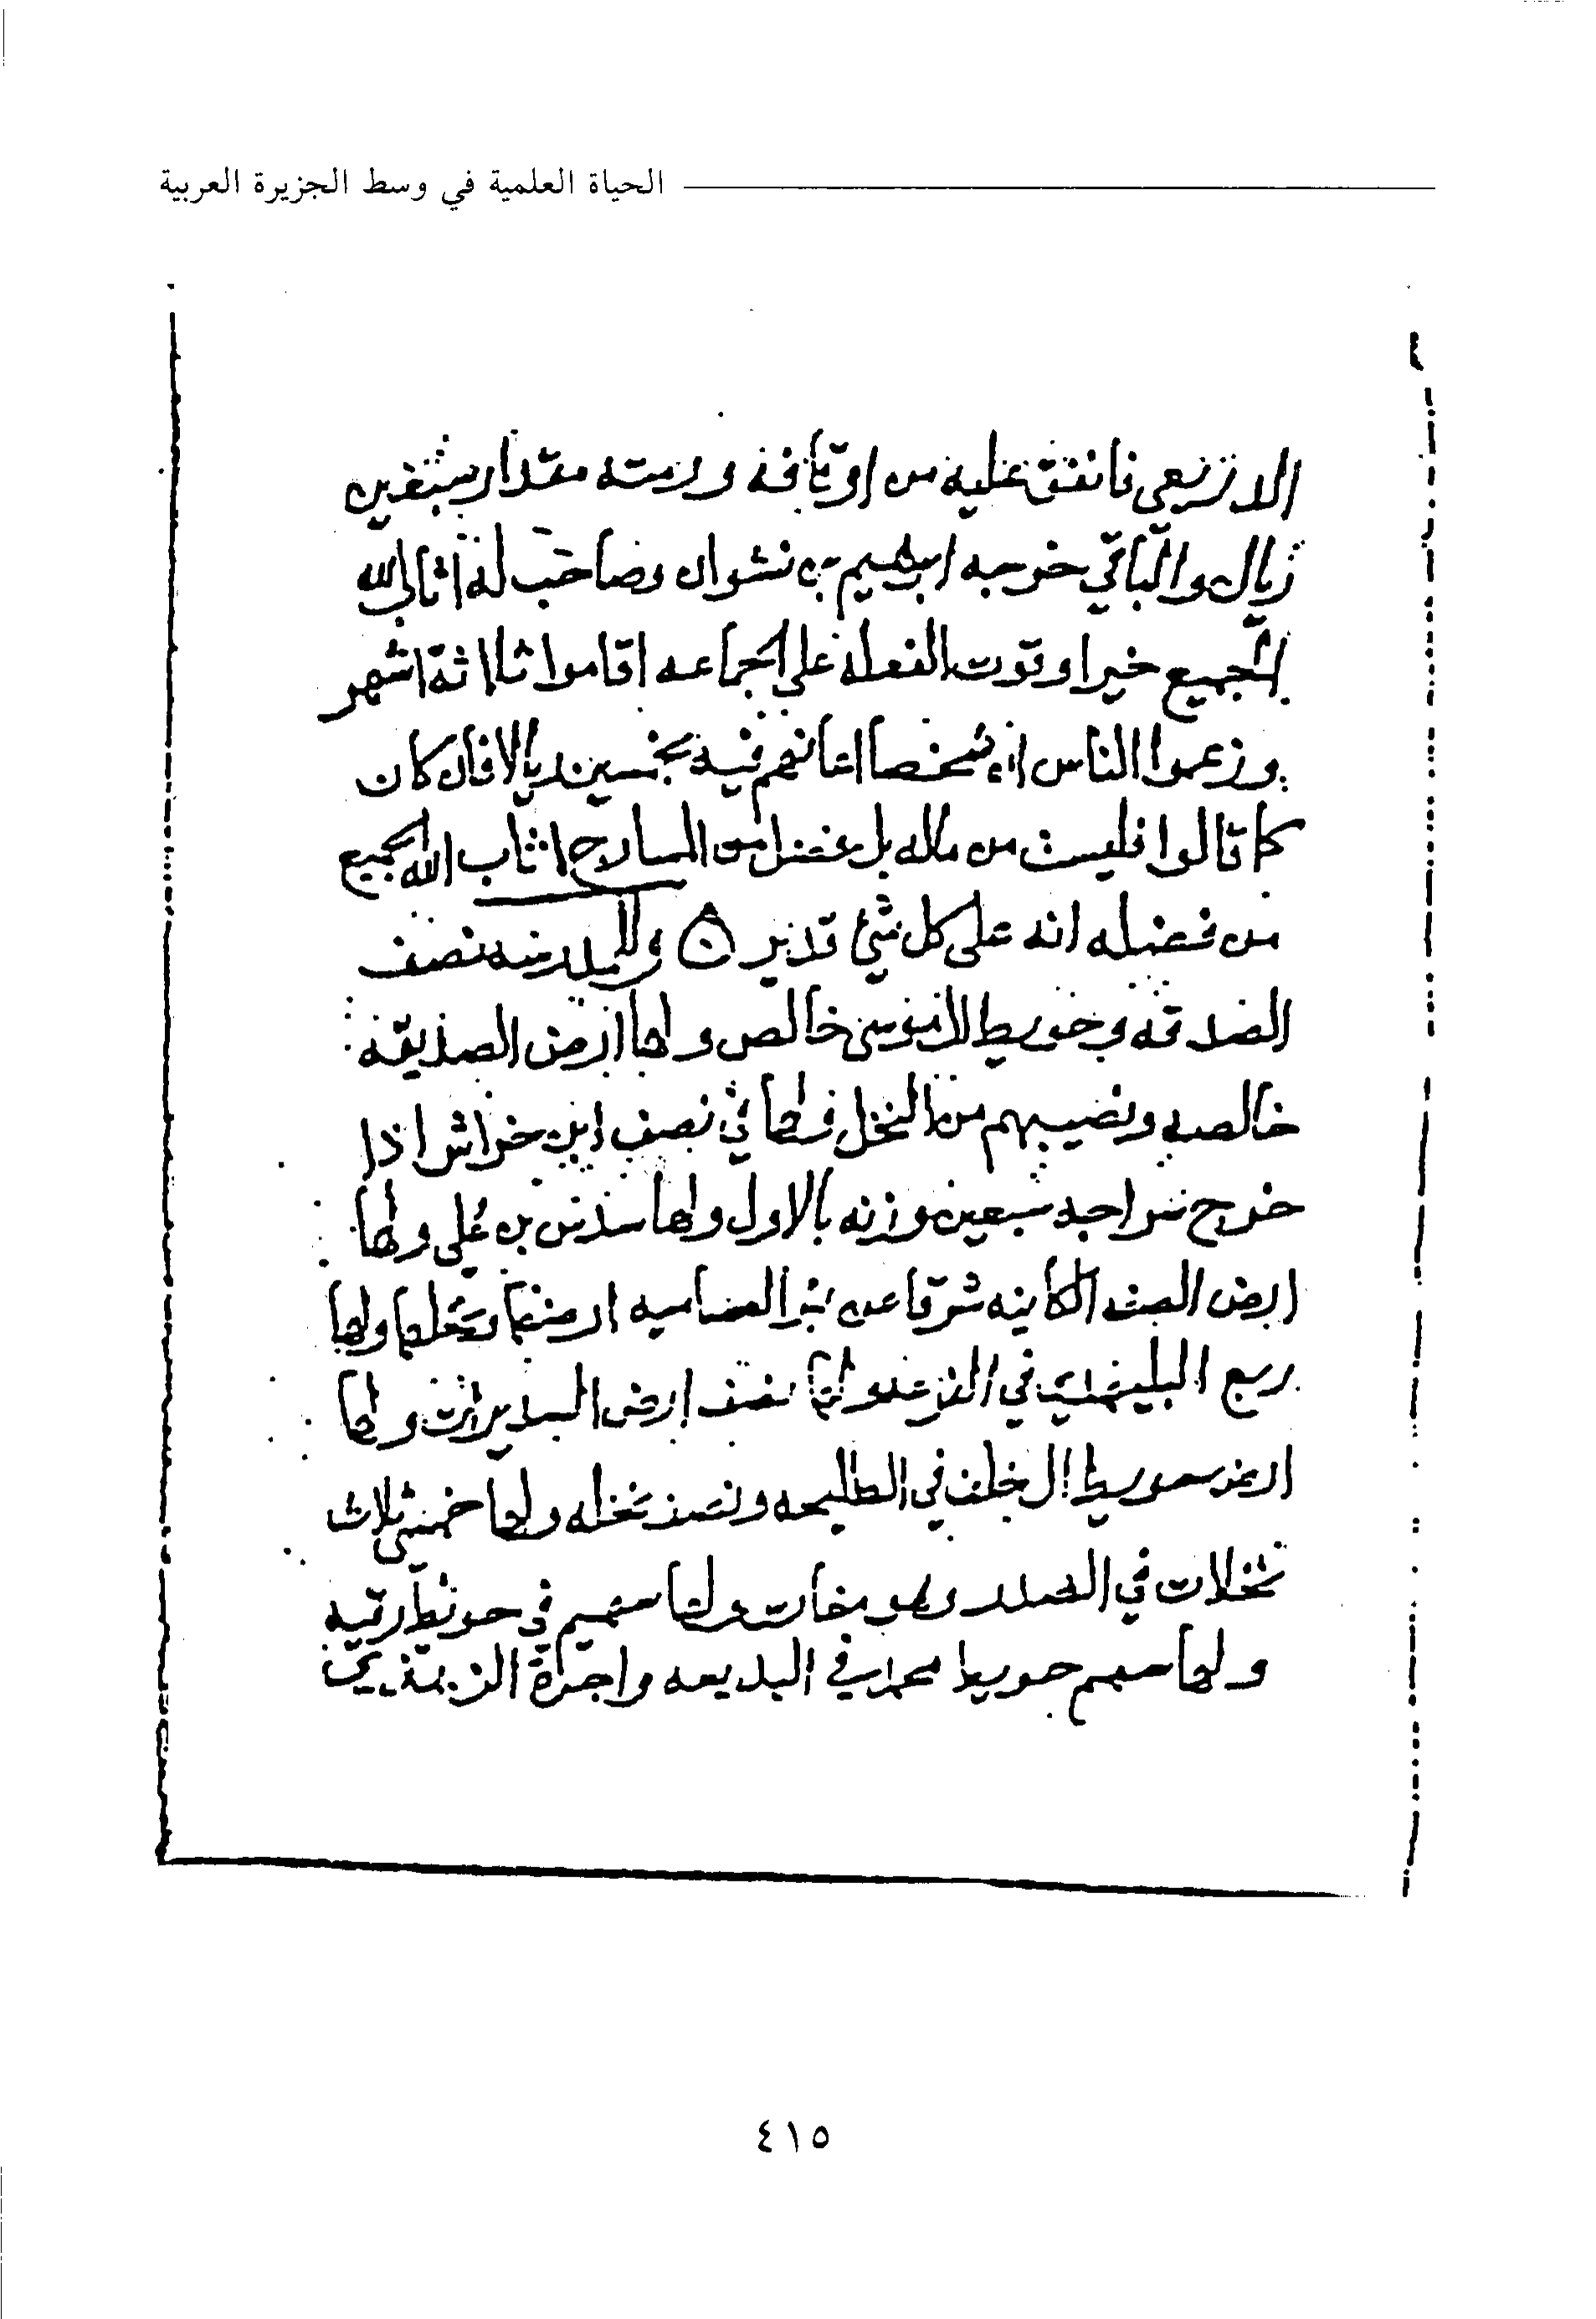 الحياة العلمية في وسط الجزيرة العربية
فانفق عليه من اوقافه ورمته مقدار سبعين
ريال والباقي خرجه ابراهيم بن نشوان وصاحب له اثاب الله
الجميع خيرا وقوت الفعله على الجماعه اقاموا ثلاثة اشهر
وزعموا الناس ان شخصا اعانهم فيه بخمسين ريالا فان كان
كما قالوا فليست من ماله بل من المسارح اثاب الله الجميع
من فضله انه على كل شئ قدير ٥ وللمدرسه نصف
الصدقه وحويط خالص ولها ارض الصديقه
خالصه ونصيبهم من النخل ولها في نصف ابن خراش اذا
خرج سراجه سبعين وزنه بالاول ولها سدس بن علي ولها
ارض الصفه الكاينه شرقا عن بئر العصاميه ارضها ونخلها ولها
ربع في ولها نصف ارض السديرات ولها
ارض حويط ال خلف في الطليحه ونصف نخله ولها خمس ثلاث
نخلات في ولها سهم في حويط رقيه
ولها سهم حويط في البديعه واجرة
٤١٥